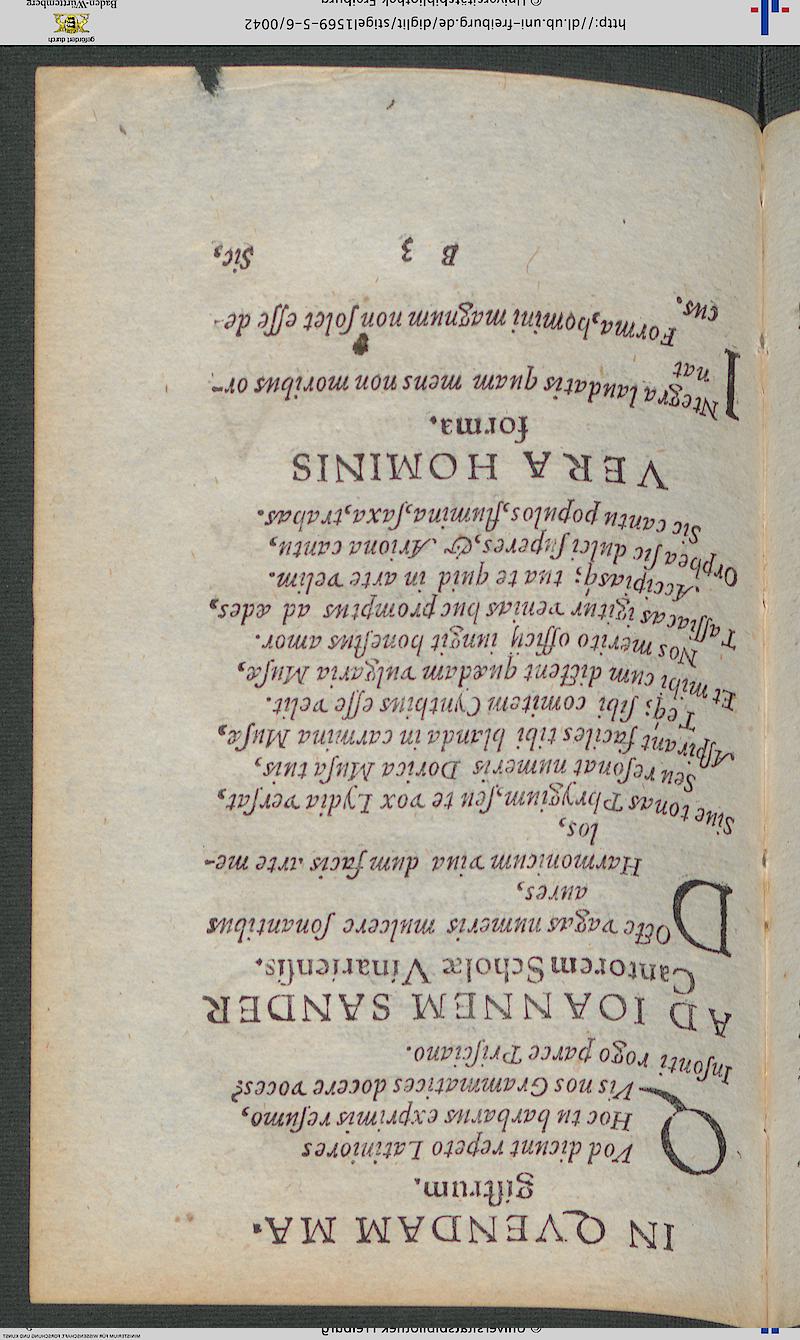 IN QVENDAM MA-
gistrum.
QVod dicunt repeto Latiniores
Hoc tu barbarus exprimis resumo,
Vis nos Grammatices docere voces?
Insonti rogo parce Prisciano.
AD IOANNEM SANDER
Cantorem Scholæ Vinariensis.
DOcte vagas numeris mulcere sonantibus
aures,
Harmonicum viua dum facis arte me-
los,
Siue tonas Phrygium, seu te vox Lydia versat,
Seu resonat numeris Dorica Musa tuis,
Aspirant faciles tibi blanda in carmina Musæ,
Teq; sibi comitem Cynthius esse velit.
Et mihi cum dictent quædam vulgaria Musæ,
Nos merito officij iungit honestus amor.
Tassiacas igitur venias huc promptus ad ædes,
Accipiasq; tua te quid in arte velim.
Orphea sic dulci superes, & Ariona cantu,
Sic cantu populos, flumina, saxa, trabas.
VERA HOMINIS
forma.
INtegra laudatis quam mens non moribus or-
nat
Forma, homini magnum non solet esse de-
cus.
B 3
Sic,
http://dl.ub.uni-freiburg.de/diglit/stigel1569-5-6/0042
© Universitätsbibliothek Freiburg
gefördert durch
Baden-Württemberg
MINISTERIUM FÜR WISSENSCHAFT, FORSCHUNG UND KUNST